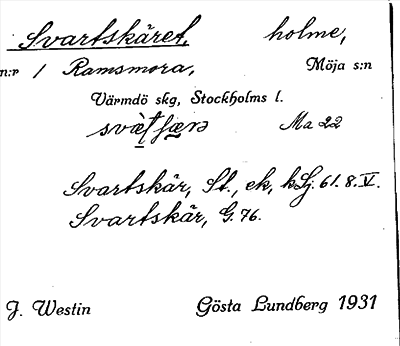 Svartskäret, holme,
n:r 1 Ramsmora, Möja s:n
Värmdö skg, Stockholms l.
Ma 22
Svartskär, St., ek, kLj. 61. 8. V.
Svartskär, G. 76.
J. Westin Gösta Lundberg 1931